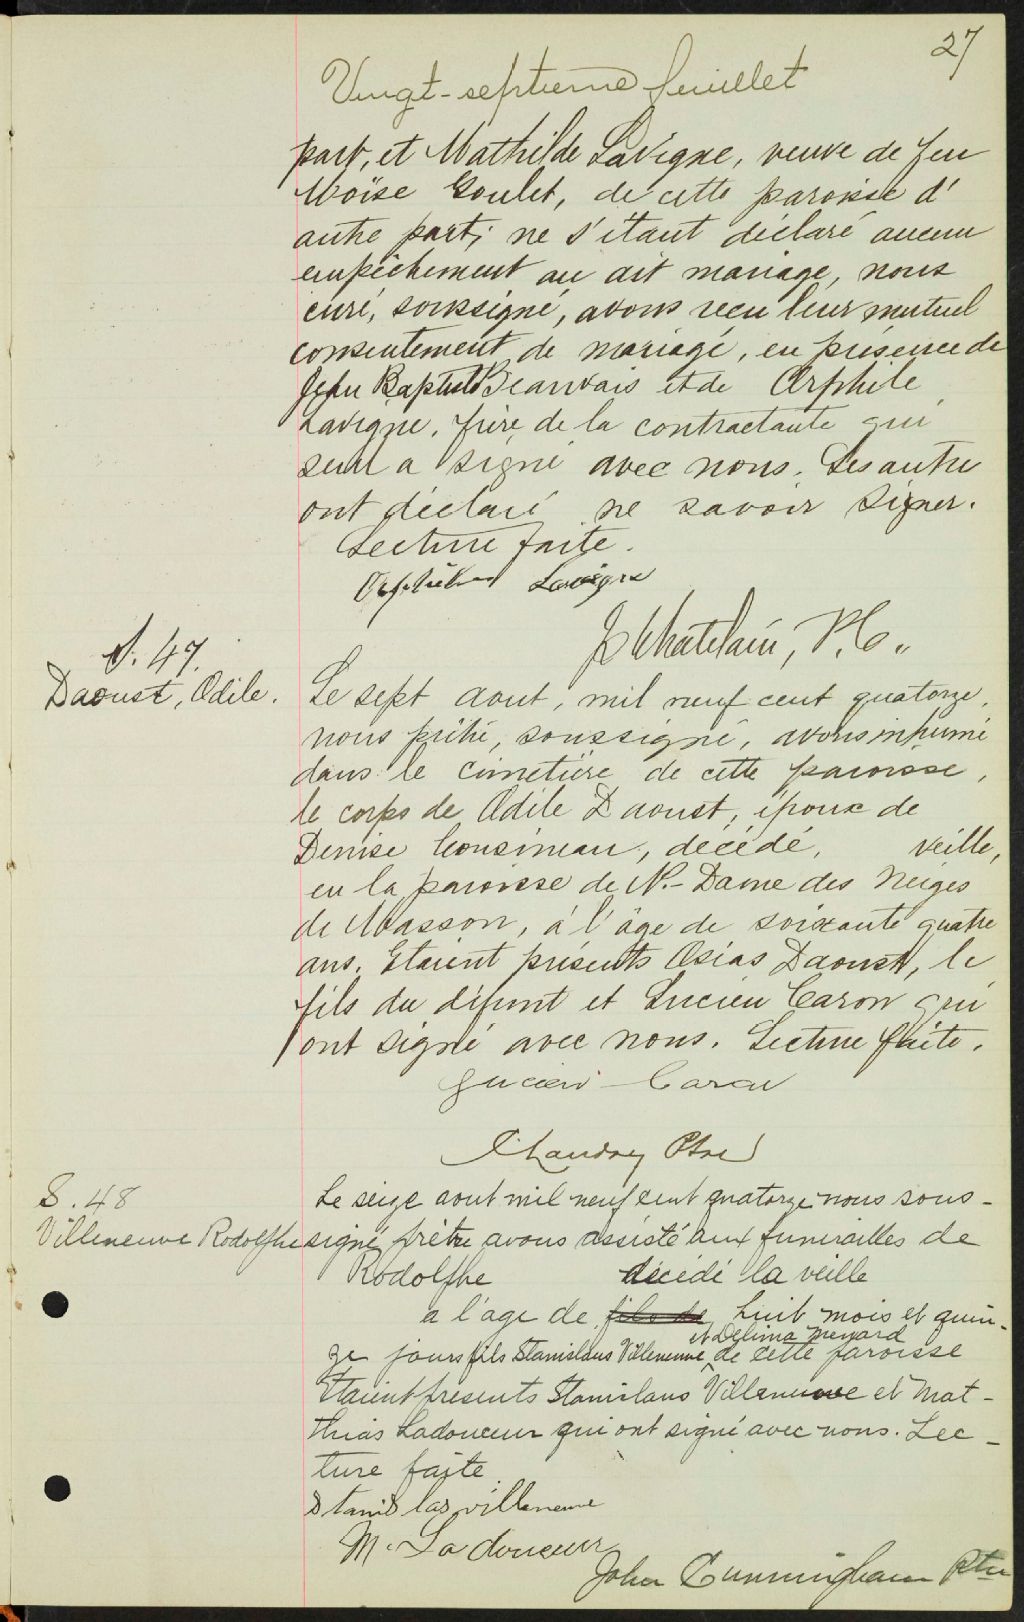 27
Vingt-septième feuillet
part, et Mathilde Lavigne, veuve de feu
Moïse Goulet, de cette paroisse d'
autre part; ne s'étant déclaré aucun
empêchement au dit mariage, nous
curé, soussigné, avons reçu leur mutuel
consentement de mariage, en présence de
Jean Baptiste Beauvais et de Orphile
Lavigne, frère de la contractante qui
seul a signé avec nous. Les autre
ont déclaré ne savoir signer.
Lecture faite.
Lavigne
J Chatelain, P.C.
S. 47.
Daoust, Odile.
Le sept aout, mil neuf cent quatorze,
nous prêtre, soussigné, avons inhumé
dans le cimetière de cette paroisse,
le corps de Odile Daoust, époux de
Denise Cousineau, décédé, veille,
en la paroisse de N.-Dame des Neiges
de Masson, à l'âge de soixante quatre
ans. Etaient présents Osias Daoust, le
fils du défunt et Lucien Caron qui
ont signé avec nous. Lecture faite.
Lucien Caron
Ptre
S. 48
Villeneuve Rodolphe
Le seize aout mil neuf cent quatorze nous sous-
signé prêtre avons assisté aux funérailles de
Rodolphe décédé la veille
a l'age de fils de huit mois et quin-
et Delima Menard
ze jours fils Stanislaus Villeneuve de cette paroisse
Etaient presents Stanislaus Villeneuve et Mat-
thias Ladouceur qui ont signé avec nous. Lec-
ture faite
Stanislas villeneuve
M. Ladouceur
John Cunningham Ptre